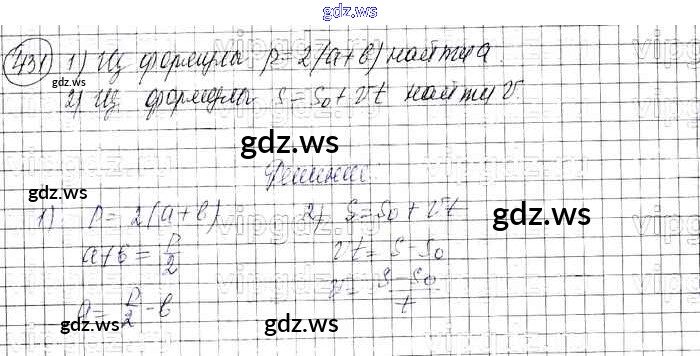 gdz.ws
431 1) Из формулы p=2(a+b) найти a.
gdz.ws
2) Из формулы s=s₀+vt найти v.
gdz.ws
Решение:
gdz.ws
1) P=2(a+b) 2) s=s₀+vt
gdz.ws
a+b=P/2 vt=s-s₀
v=(s-s₀)/t
a=P/2-b
gdz.ws gdz.ws gdz.ws